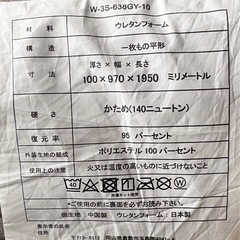 W-3S-638GY-10
材料 ウレタンフォーム
構造 一枚もの平形
寸法 厚さ×幅×長さ
100×970×1950 ミリメートル
硬さ かため(140ニュートン)
復元率 95 パーセント
外装生地の組成 ポリエステル 100 パーセント
使用上の注意 火又は温度の高いものに近づけないこと
40
*ご使用の前に裏面を必ずお読み下さい。
側生地 中国製 ウレタンフォーム:日本製
〒713-8112 岡山県倉敷市